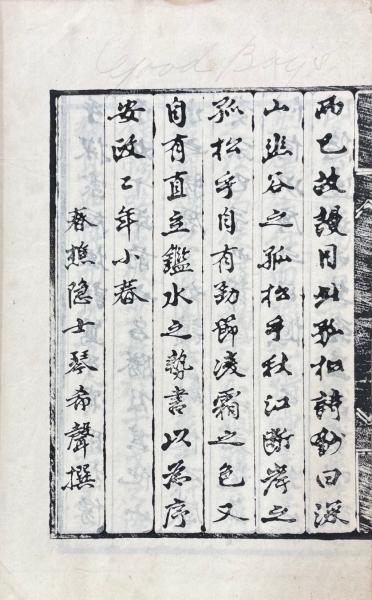 Good Boys
而已故謾目此孤松詩鈔曰深
山幽谷之孤松乎秋江断岸之
孤松乎自有勁節凌霜之色又
自有直立鑑水之勢書以為序
安政二年小春
春樵隐士琴希聲撰